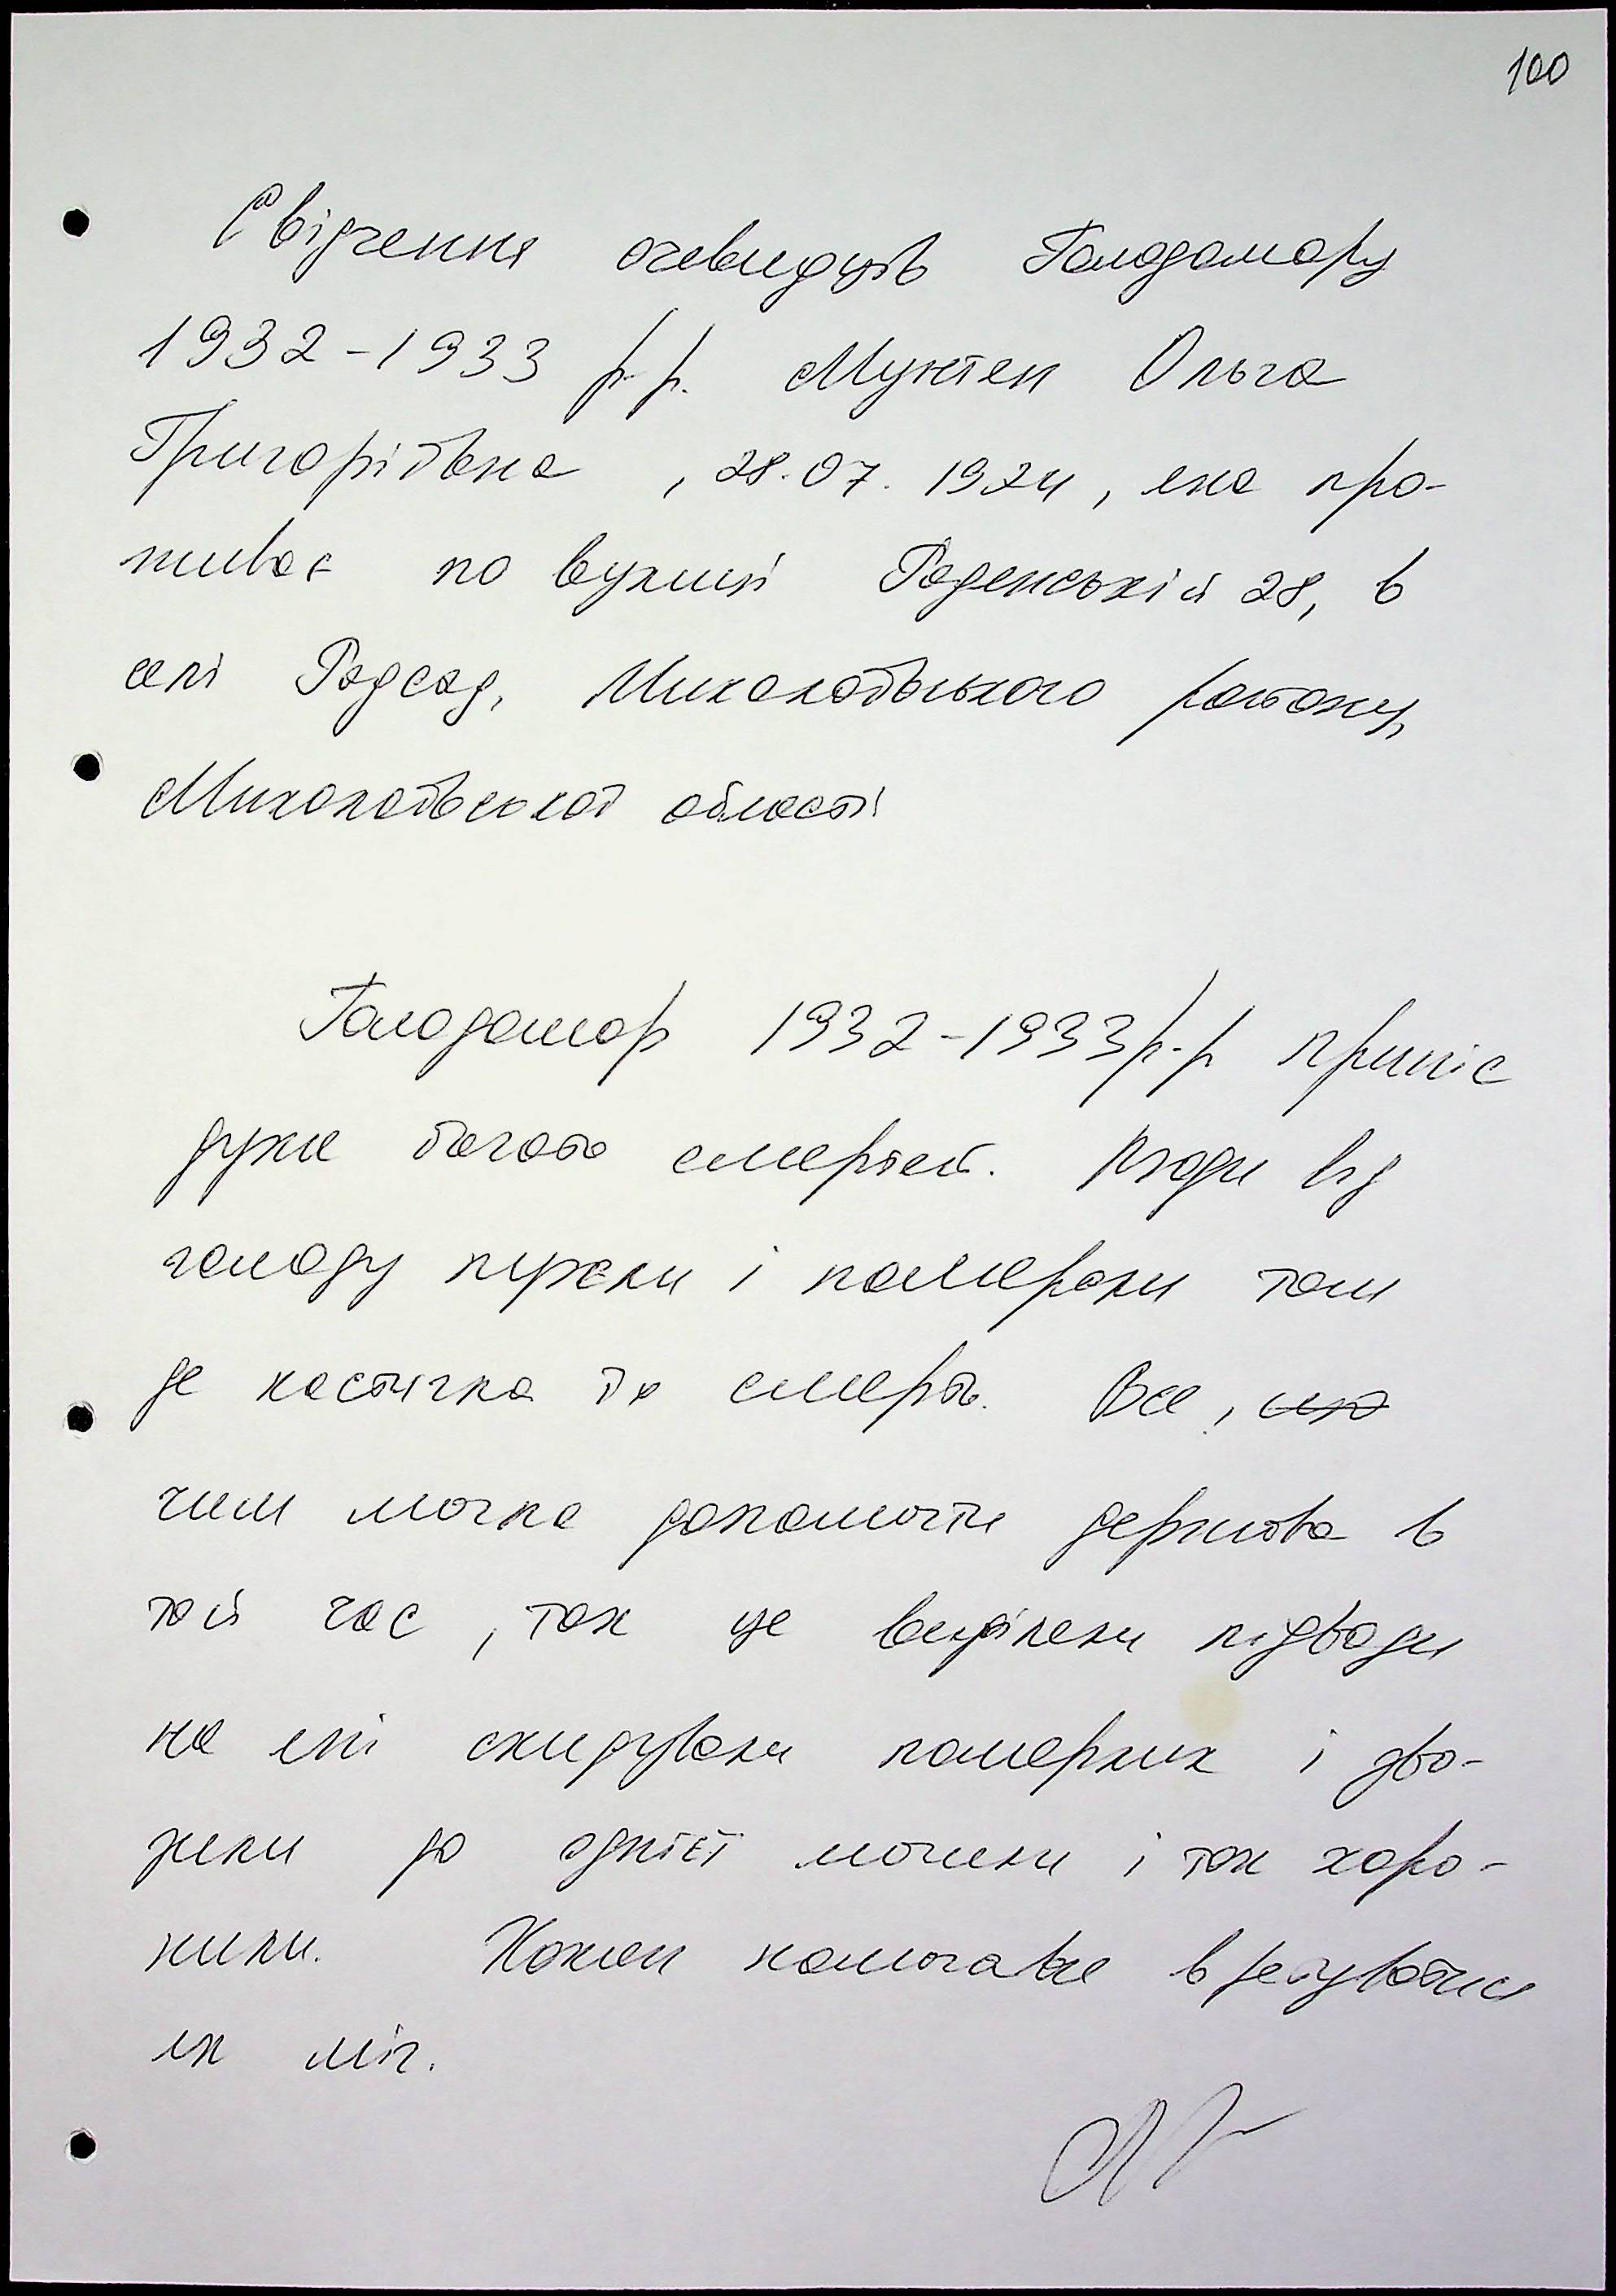 100
Свідчення очевидців Голодомору
1932-1933 р.р. Мунтян Ольга
Григорівна, 28.07.1924, яка про-
живає по вулиці Раденській 28, в
селі Радсад, Миколаївського району,
Миколаївської області
Голодомор 1932-1933 р.р приніс
дуже багато смертей. Люди від
голоду пухли і помирали там
де настигла їх смерть. Все, що
чим могла допомогти держава в
той час, так це виділяли підводи
на які скидували померлих і зво-
зили до однієї могили і так хоро-
нили. Кожен намагався врятуватися
як міг.